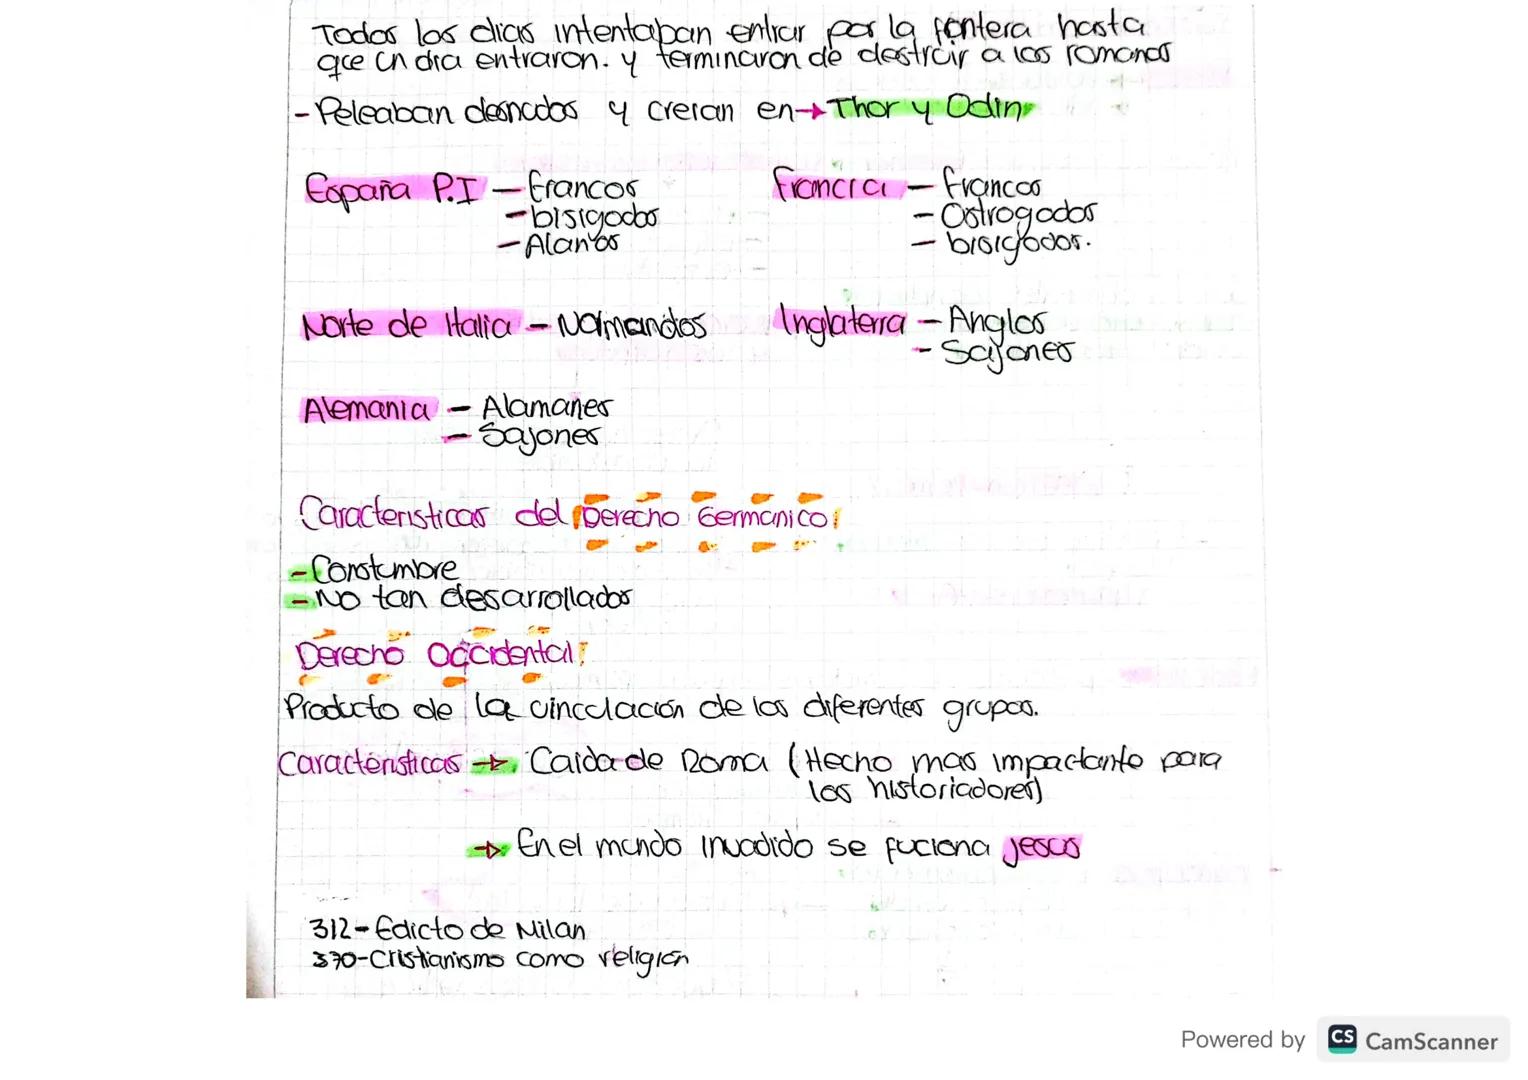 Todos los dias intentaban entrar por la fontera hasta
que un dia entraron. y terminaron de destruir a los romanos
- Peleaban desnudos y creian en → Thor y Odin
España P.I - francos
- bisigodos
- Alanos
Francia - francos
- Ostrogodos
- bisigodos.
Norte de Italia - Nolmandos
Inglaterra - Anglos
- Sajones
Alemania - Alamanes
- Sajones
Caracteristicas del Derecho Germanico
- Constumbre
- No tan desarrollados
Derecho Occidental
Producto de la vinculación de los diferentes grupos.
Caracteristicas → Caida de Roma (Hecho mas impactante para
los historiadores)
→ En el mundo invadido se fuciona jesus
312- Edicto de Milan
370-Cristianismo como religión
Powered by CS CamScanner